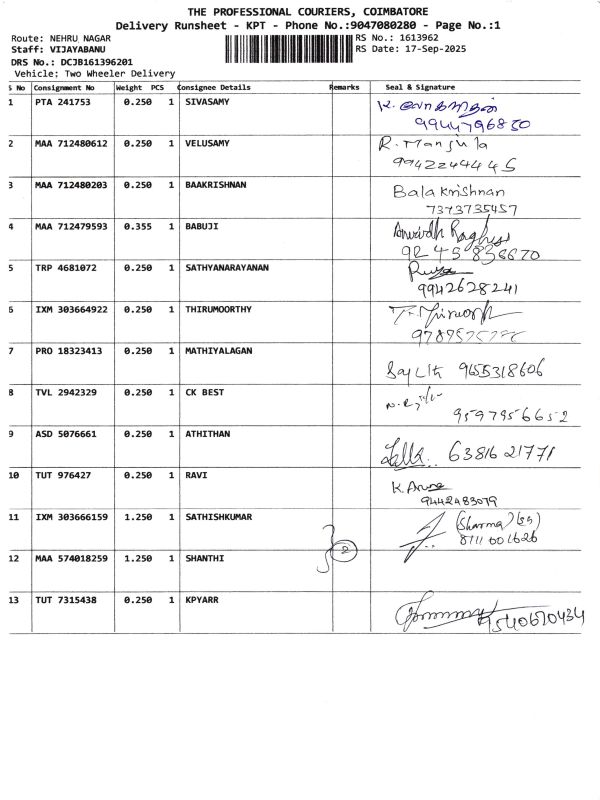 THE PROFESSIONAL COURIERS, COIMBATORE
Delivery Runsheet - KPT - Phone No.:9047080280 - Page No.:1
Route: NEHRU NAGAR
RS No.: 1613962
Staff: VIJAYABANU
RS Date: 17-Sep-2025
DRS No.: DCJB161396201
Vehicle: Two Wheeler Delivery
S No Consignment No Weight PCS Consignee Details Remarks Seal & Signature
1 PTA 241753 0.250 1 SIVASAMY
9944796850
2 MAA 712480612 0.250 1 VELUSAMY R. Manjula
9942244445
3 MAA 712480203 0.250 1 BAAKRISHNAN Balakrishnan
7373735457
4 MAA 712479593 0.355 1 BABUJI
5 TRP 4681072 0.250 1 SATHYANARAYANAN
9942628241
6 IXM 303664922 0.250 1 THIRUMOORTHY
7 PRO 18323413 0.250 1 MATHIYALAGAN
9655318606
8 TVL 2942329 0.250 1 CK BEST
9597956652
9 ASD 5076661 0.250 1 ATHITHAN
6381621771
10 TUT 976427 0.250 1 RAVI K.
9442483079
11 IXM 303666159 1.250 1 SATHISHKUMAR (Sharma)
2
12 MAA 574018259 1.250 1 SHANTHI
13 TUT 7315438 0.250 1 KPYARR